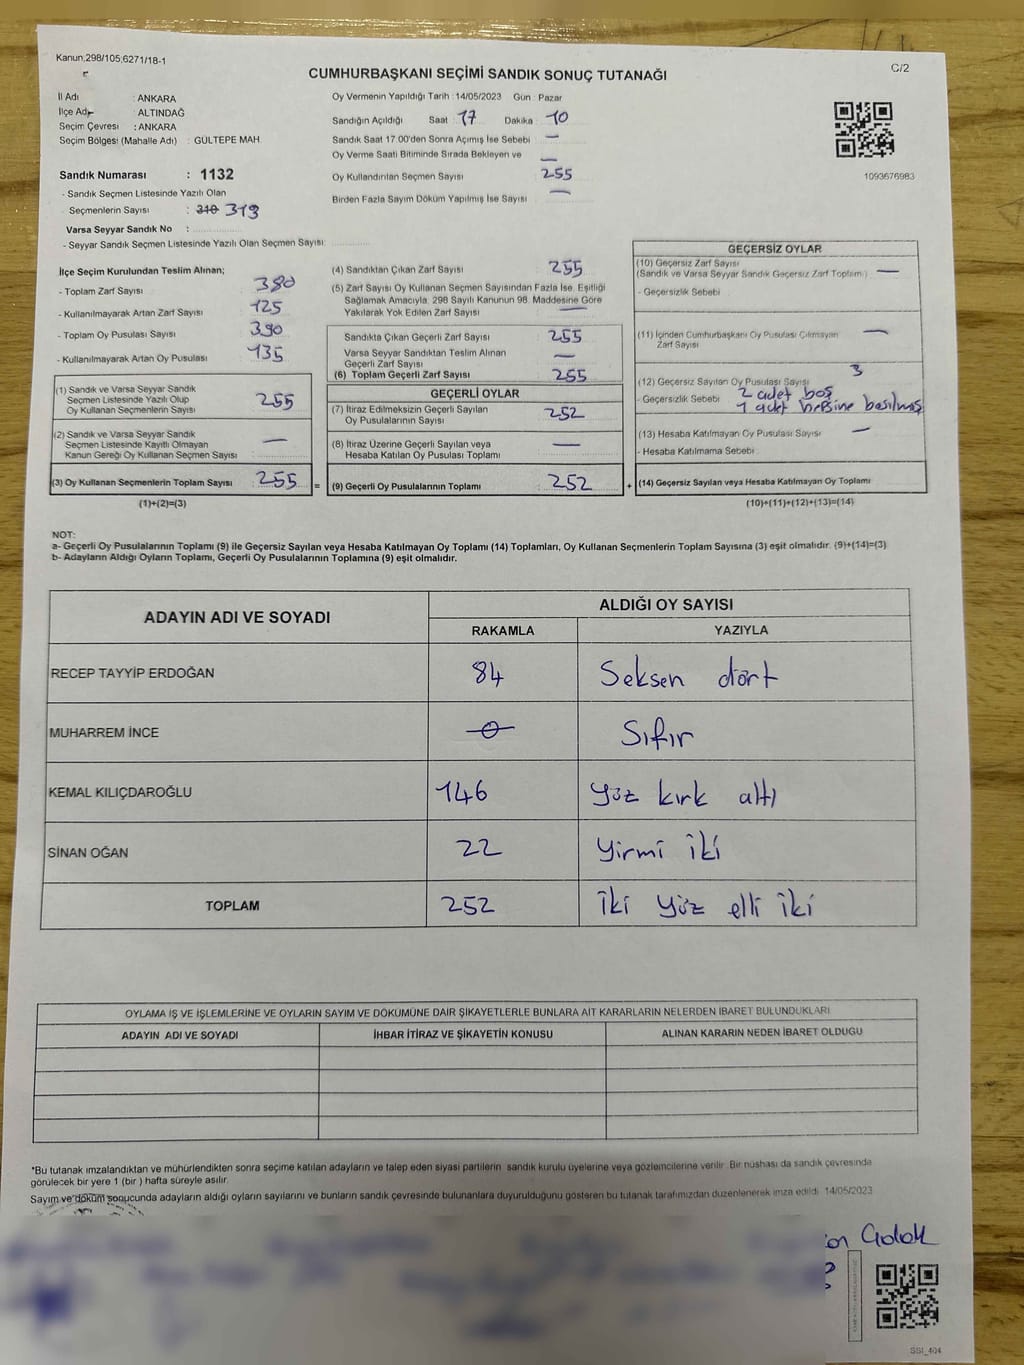 Kanun;298/105;6271/18-1
CUMHURBAŞKANI SEÇİMİ SANDIK SONUÇ TUTANAĞI
C/2
İl Adı : ANKARA
İlçe Adı : ALTINDAĞ
Seçim Çevresi : ANKARA
Seçim Bölgesi (Mahalle Adı) : GÜLTEPE MAH
Sandık Numarası : 1132
- Sandık Seçmen Listesinde Yazılı Olan
Seçmenlerin Sayısı : 310 313
Varsa Seyyar Sandık No :
- Seyyar Sandık Seçmen Listesinde Yazılı Olan Seçmen Sayısı:
Oy Vermenin Yapıldığı Tarih :14/05/2023 Gün : Pazar
Sandığın Açıldığı Saat : 17 Dakika : 10
Sandık Saat 17.00'den Sonra Açımış İse Sebebi : —
Oy Verme Saati Bitiminde Sırada Bekleyen ve
Oy Kullandırılan Seçmen Sayısı : 255
Birden Fazla Sayım Döküm Yapılmış İse Sayısı : —
1093676983
İlçe Seçim Kurulundan Teslim Alınan;
- Toplam Zarf Sayısı : 380
- Kullanılmayarak Artan Zarf Sayısı : 125
- Toplam Oy Pusulası Sayısı : 390
- Kullanılmayarak Artan Oy Pusulası : 135
(1) Sandık ve Varsa Seyyar Sandık
Seçmen Listesinde Yazılı Olup
Oy Kullanan Seçmenlerin Sayısı : 255
(2) Sandık ve Varsa Seyyar Sandık
Seçmen Listesinde Kayıtlı Olmayan
Kanun Gereği Oy Kullanan Seçmen Sayısı : —
(3) Oy Kullanan Seçmenlerin Toplam Sayısı : 255
(1)+(2)=(3)
(4) Sandıktan Çıkan Zarf Sayısı : 255
(5) Zarf Sayısı Oy Kullanan Seçmen Sayısından Fazla İse, Eşitliği
Sağlamak Amacıyla, 298 Sayılı Kanunun 98. Maddesine Göre
Yakılarak Yok Edilen Zarf Sayısı : —
Sandıkta Çıkan Geçerli Zarf Sayısı : 255
Varsa Seyyar Sandıktan Teslim Alınan
Geçerli Zarf Sayısı : —
(6) Toplam Geçerli Zarf Sayısı : 255
GEÇERLİ OYLAR
(7) İtiraz Edilmeksizin Geçerli Sayılan
Oy Pusulalarının Sayısı : 252
(8) İtiraz Üzerine Geçerli Sayılan veya
Hesaba Katılan Oy Pusulası Toplamı : —
= (9) Geçerli Oy Pusulalarının Toplamı : 252
GEÇERSİZ OYLAR
(10) Geçersiz Zarf Sayısı
(Sandık ve Varsa Seyyar Sandık Geçersiz Zarf Toplamı) : —
- Geçersizlik Sebebi :
(11) İçinden Cumhurbaşkanı Oy Pusulası Çıkmayan
Zarf Sayısı : —
(12) Geçersiz Sayılan Oy Pusulası Sayısı : 3
- Geçersizlik Sebebi : 2 adet boş
1 adet hepsine basılmış
(13) Hesaba Katılmayan Oy Pusulası Sayısı : —
- Hesaba Katılmama Sebebi :
+ (14) Geçersiz Sayılan veya Hesaba Katılmayan Oy Toplamı
(10)+(11)+(12)+(13)=(14)
NOT:
a- Geçerli Oy Pusulalarının Toplamı (9) ile Geçersiz Sayılan veya Hesaba Katılmayan Oy Toplamı (14) Toplamları, Oy Kullanan Seçmenlerin Toplam Sayısına (3) eşit olmalıdır. (9)+(14)=(3)
b- Adayların Aldığı Oyların Toplamı, Geçerli Oy Pusulalarının Toplamına (9) eşit olmalıdır.
ADAYIN ADI VE SOYADI ALDIĞI OY SAYISI
RAKAMLA YAZIYLA
RECEP TAYYİP ERDOĞAN 84 Seksen dört
MUHARREM İNCE 0 Sıfır
KEMAL KILIÇDAROĞLU 146 Yüz kırk altı
SİNAN OĞAN 22 Yirmi iki
TOPLAM 252 İki yüz elli iki
OYLAMA İŞ VE İŞLEMLERİNE VE OYLARIN SAYIM VE DÖKÜMÜNE DAİR ŞİKAYETLERLE BUNLARA AİT KARARLARIN NELERDEN İBARET BULUNDUKLARI
ADAYIN ADI VE SOYADI İHBAR İTİRAZ VE ŞİKAYETİN KONUSU ALINAN KARARIN NEDEN İBARET OLDUĞU
*Bu tutanak imzalandıktan ve mühürlendikten sonra seçime katılan adayların ve talep eden siyasi partilerin sandık kurulu üyelerine veya gözlemcilerine verilir. Bir nüshası da sandık çevresinde
görülecek bir yere 1 (bir ) hafta süreyle asılır.
Sayım ve döküm sonucunda adayların aldığı oyların sayılarını ve bunların sandık çevresinde bulunanlara duyurulduğunu gösteren bu tutanak tarafımızdan düzenlenerek imza edildi. 14/05/2023
SSI_404